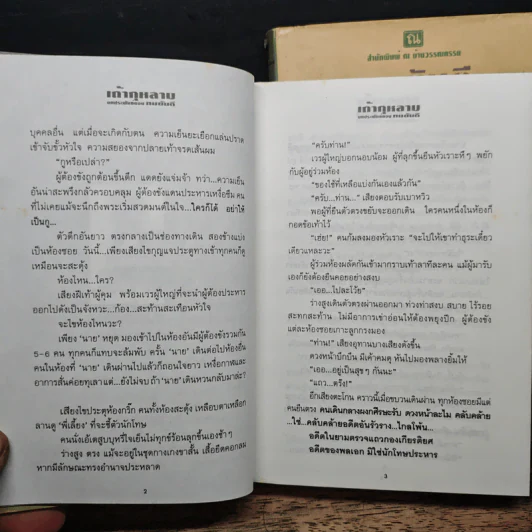 สำนักพิมพ์ ณ บ้านวรรณกรรม
เถ้ากุหลาบ
บุคคลอื่น แต่เมื่อจะเกิดกับตน ความเย็นยะเยือกแล่นปราด
เข้าจับขั้วหัวใจ ความสยองจากปลายเท้าจรดเส้นผม
"กูหรือเปล่า?"
ผู้ต้องขังถูกต้อนขึ้นตึก แดดยังแจ่มจ้า ทว่า...ความเย็น
อันน่าสะพรึงกลัวครอบคลุม ผู้ต้องขังแดนประหารเหงื่อซึม คน
ที่ไม่เคยแม้จะนึกถึงพระเริ่มสวดมนต์ในใจ...ใครก็ได้ อย่าให้
เป็นกู...
ตัวตึกอันยาว ตรงกลางเป็นช่องทางเดิน สองข้างแบ่ง
เป็นห้องซอย วันนี้...เพียงเสียงไขกุญแจประตูทางเข้าทุกคนก็ดู
เหมือนจะสะดุ้ง
ห้องไหน...ใคร?
เสียงฝีเท้าผู้คุม พร้อมเวรผู้ใหญ่ที่จะนำผู้ต้องประหาร
ออกไปดังเป็นจังหวะ...ก้อง...สะท้านสะเทือนหัวใจ
จะไขห้องไหนวะ?
เพียง 'นาย' หยุด มองเข้าไปในห้องอันมีผู้ต้องขังรวมกัน
5-6 คน ทุกคนก็แทบจะล้มพับ ครั้น 'นาย' เดินต่อไปห้องอื่น
คนในห้องที่ 'นาย' เดินผ่านไปแล้วก็ถอนใจยาว เหงื่อกาฬและ
อาการสั่นค่อยทุเลาแต่...ยังไม่จบ ถ้า 'นาย' เดินหวนกลับมาล่ะ?
เสียงไขประตูห้องกริ๊ก คนทั้งห้องสะดุ้ง เหลือบตาเหลือก
ลานดู 'พี่เลี้ยง' ที่จะชี้ตัวนักโทษ
คนนั่งเอ้เตสูบบุหรี่ใจเย็นไม่ทุกข์ร้อนลุกขึ้นเองช้าๆ
ร่างสูง ตรง แม้จะอยู่ในชุดกางเกงขาสั้น เสื้อยืดคอกลม
หากมีลักษณะทรงอำนาจประหลาด
2
เถ้ากุหลาบ
"ครับท่าน!"
เวรผู้ใหญ่บอกนอบน้อม ผู้ที่ลุกขึ้นยืนหัวเราะหึๆ พยัก
กับผู้อยู่ร่วมห้อง
"ของใช้ที่เหลือแบ่งกันเองแล้วกัน"
"ครับ...ท่าน..." เสียงตอบรับเบาหวิว
พอผู้ที่ยืนตัวตรงขยับจะออกเดิน ใครคนหนึ่งในห้องก็
กอดข้อเท้าไว้
"เฮ่ย!" คนก้มลงมองหัวเราะ "จะไปให้เขาทำธุระเดี๋ยว
เดียวแหละวะ"
ผู้ร่วมห้องผลัดกันเข้ามากราบเท้าลาทีละคน แม้ผู้มารับ
เองก็ยังต้องยืนคอยอย่างสงบ
"เออ...ไปละโว้ย"
ร่างสูงเดินตัวตรงผ่านออกมา ท่วงท่าสง่า สบาย ไร้รอย
สะทกสะท้าน ไม่มีอาการเข่าอ่อนให้ต้องพยุงปีก ผู้ต้องขัง
แต่ละห้องซอยเกาะลูกกรงมอง
"ท่าน!" เสียงอุทานบางเสียงดังขึ้น
ดวงหน้าบึกบึน มีเค้าคมดุ หันไปมองพลางยิ้มให้
"เออ...อยู่เป็นสุขๆ กันนะ"
"แถว...ตรง!"
อีกเสียงตะโกน คราวนี้เมื่อขบวนเดินผ่าน ทุกห้องซอยมีแต่
คนยืนตรง คนเดินกลางผงกศีรษะรับ ดวงหน้าละไม คลับคล้าย
...ใช่...คลับคล้ายอดีตอันรัวราง...ไกลโพ้น...
อดีตในยามตรวจแถวกองเกียรติยศ
อดีตของพลเอก มิใช่นักโทษประหาร
3